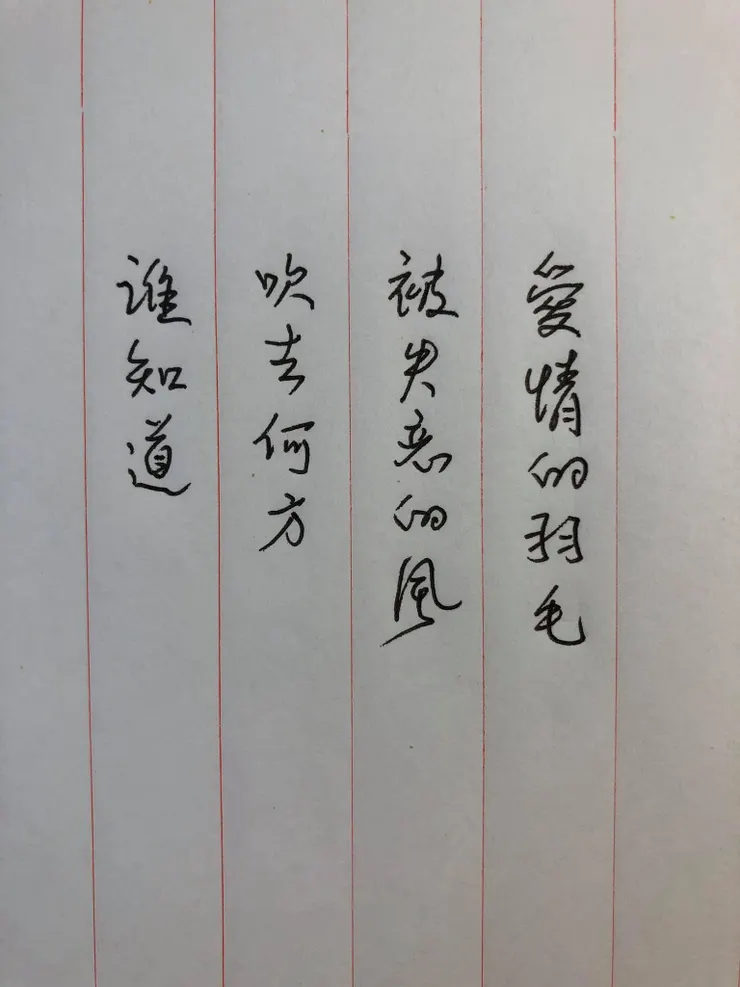 愛情的羽毛
被失恋的風
吹去何方
誰知道